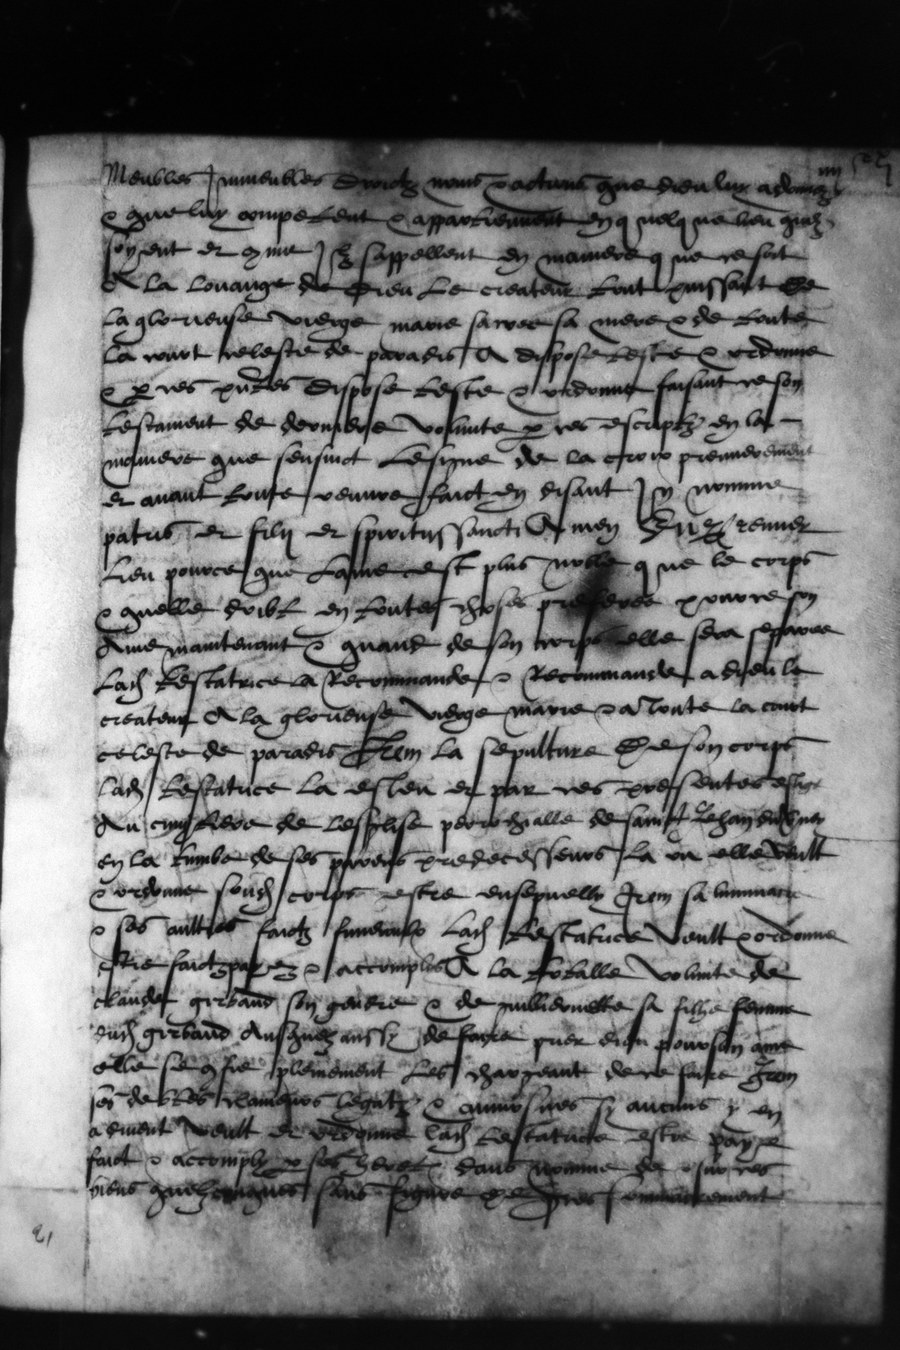 Meubles Immeubles droictz noms & actions que dieu luy a donnez
& que luy competent & appartiennent en quelque lieu quilz
soyent et comme Ilz sappellent en maniere que ce soit
A la louange de Dieu le createur tout puissant De
la glorieuse vierge marie sacree sa mere & de toute
la court celeste de paradis A dispose teste & ordonne
& par ces presentes dispose teste & ordonne faisant ce son
testament de derniere volunte par ces escriptz en la
maniere que sensuict Le signe de la croix premierement
et avant toute oeuvre faict en disant In nomine
patris et filii et spiritussancti Amen Et premier
Lieu pource que lame est plus noble que le corps
& quelle doibt en toutes choses preferee pource son
Ame maintenant & quand de son corps elle sera separee
Lad testatrice la Recommande & Recommande a dieu le
createur A la glorieuse vierge marie & a Toute la court
celeste de paradis Item la sepulture De son corps
Lad testatrice la esleu et par ces presentes eslise
Au cimistiere de lesglise parrochialle de sainct Jehan
en la tumbe de ses parens predecesseurs la ou elle veult
& ordonne soud corps estre ensepuelly Item sa luminaire
& ses aultres faictz funeraulx Lad testatrice veult & ordonne
estre faictz & accomplis A la totalle volunte de
claude girbaud son gendre & de guillermette sa filhe femme
dud girbaud Ausquelz aussy de faire prier dieu pour son ame
elle se confie plainement Les chargeant de ce faire Item
ses debtes clameurs legatz & aumosnes sy aucuns y en
advient veult et ordonne lad testatrice estre paye
faict & accomply par ses heretiers dans nomme de & sur ces
biens quelzconques sans figure de proces sommairement
21